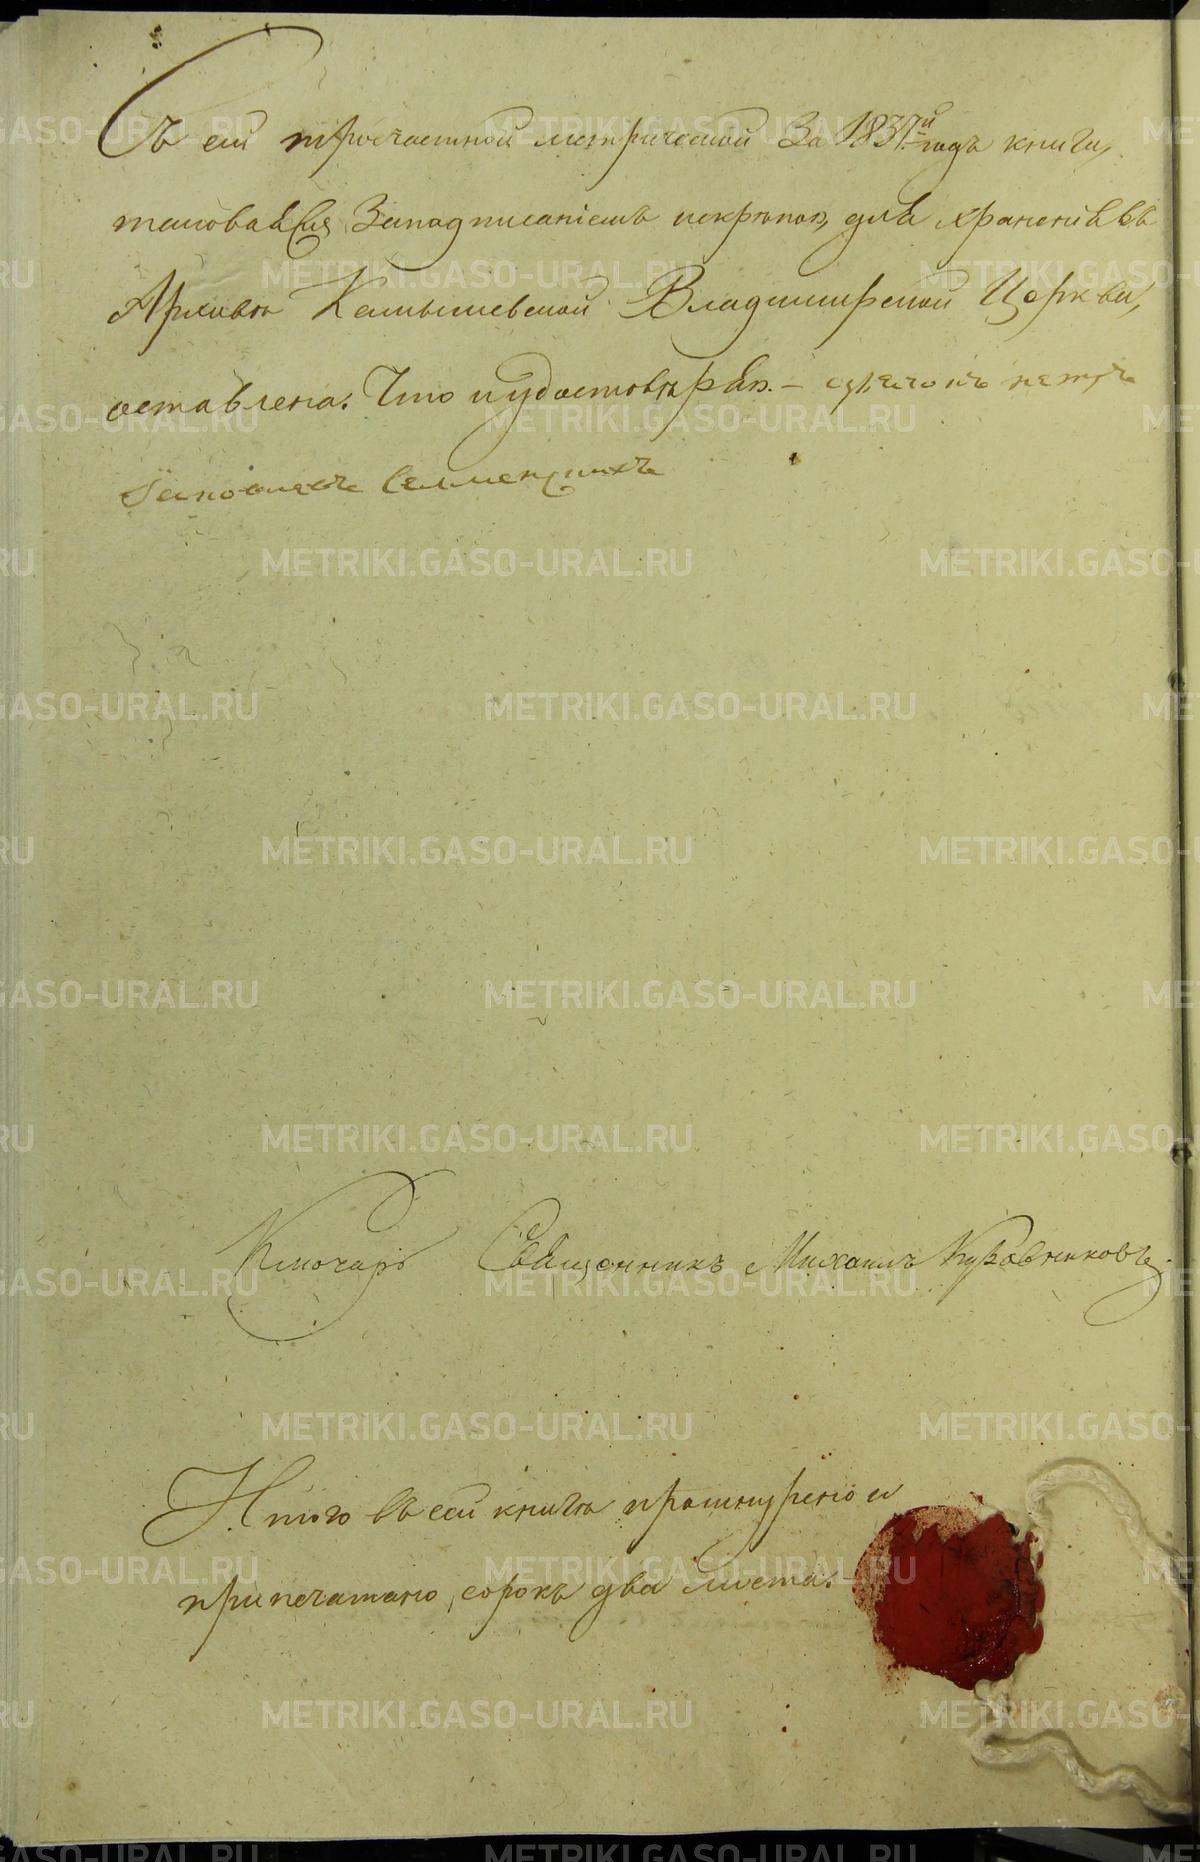 Съ сей троечастной метрической за 1837й годъ книги,
таковая сія за подписаніемъ и скрѣпою, для храненія въ
Архивѣ Камышевской Владимирской Церкви,
оставлена. Что и удостовѣряю. –
Ключарь Священникъ Михаилъ
Итого въ сей книгѣ прошнурено и
припечатано, сорокъ два листа. –
METRIKI.GASO-URAL.RU